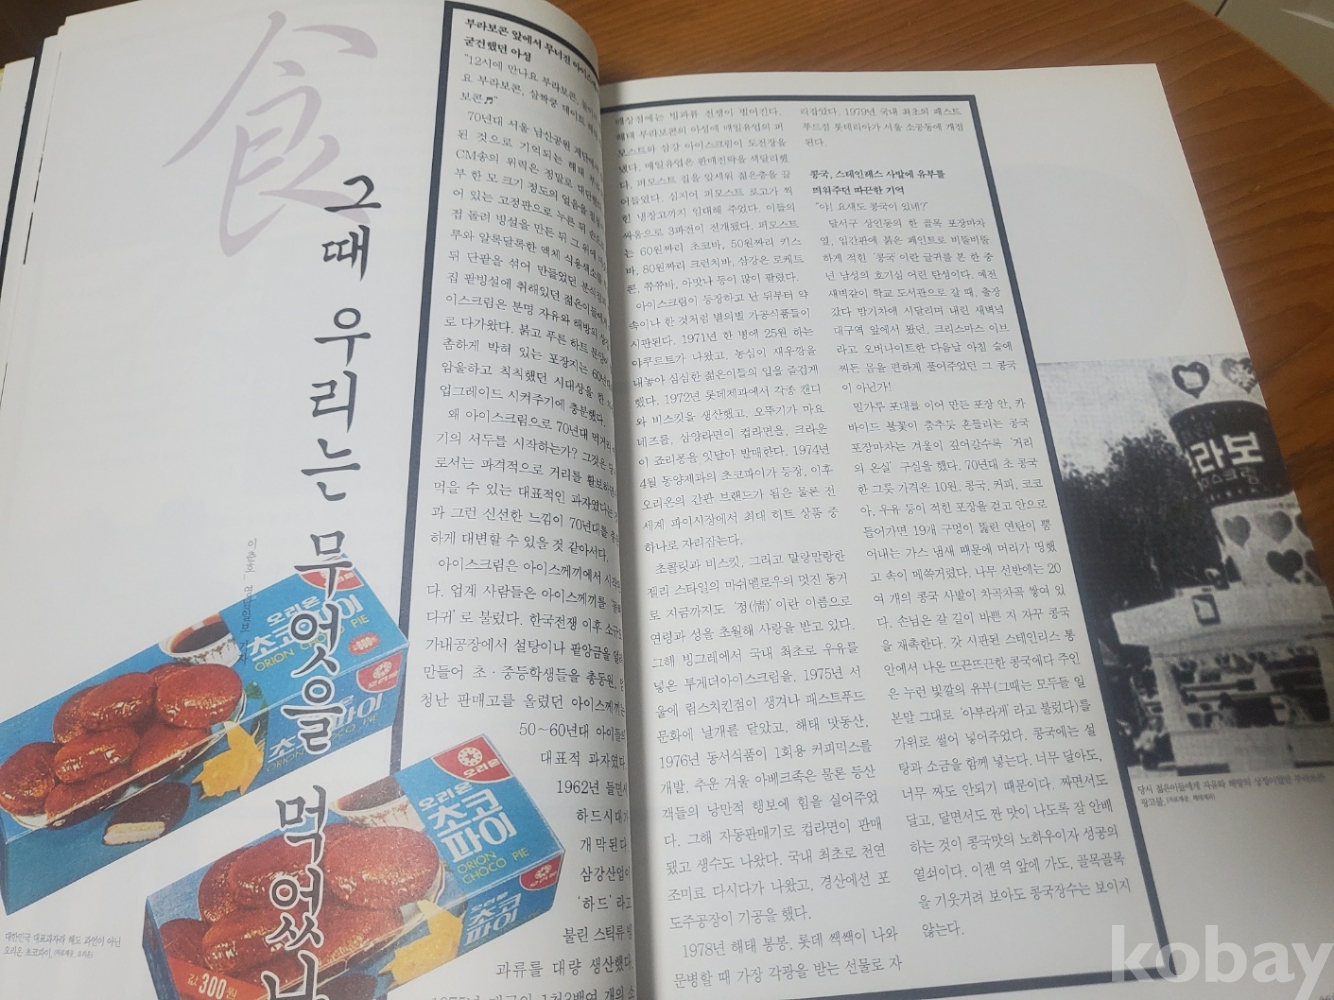 食
그때 우리는 무엇을 먹었나
이춘호 영남일보 기자
부라보콘 앞에서 무너진 아이스
굳건했던 아성
"12시에 만나요 부라보콘,
요 부라보콘, 살짝쿵 데이트
보콘♬"
70년대 서울 남산공원
된 것으로 기억되는 해태
CM송의 위력은 정말로
부 한 모 크기 정도의 얼음을
어 있는 고정판으로 누른 뒤 손으로
접 돌려 빙설을 만든 뒤 그 위에
루와 알록달록한 액체 식용색소를
뒤 단팥을 섞어 만들었던 분식점
집 팥빙실에 취해있던 젊은이들에게
이스크림은 분명 자유와 해방의
로 다가왔다. 붉고 푸른 하트 문양이
촘하게 박혀 있는 포장지는 60년대
암울하고 칙칙했던 시대상을 한
업그레이드 시켜주기에 충분했다.
왜 아이스크림으로 70년대 먹거리
기의 서두를 시작하는가? 그것은
로서는 파격적으로 거리를 활보하면서
먹을 수 있는 대표적인 과자였다는
과 그런 신선한 느낌이 70년대를
하게 대변할 수 있을 것 같아서다.
아이스크림은 아이스께끼에서 시작
다. 업계 사람들은 아이스께끼를
다귀'로 불렀다. 한국전쟁 이후
가내공장에서 설탕이나 팥앙금을
만들어 초·중등학생들을 총동원,
청난 판매고를 올렸던 아이스께끼는
50~60년대 아이들의
대표적 과자였다.
1962년 들면서
하드시대가
개막된다.
삼강산업이
'하드'라고
불린 스틱류 빙
과류를 대량 생산했다.
오리온
초코파이
ORION CHOCO PIE
오리온
초코
파이
ORION
CHOCO PIE
오리온
초코
파이
값 300원
대한민국 대표과자라 해도 과언이 아닌
오리온 초코파이. (자료제공 오리온)
대상점에는 빙과류 전쟁이 벌어진다.
해태 부라보콘의 아성에 매일유업의 퍼
모스트와 삼강 아이스크림이 도전장을
냈다. 매일유업은 판매전략을 색달리했
다. 퍼모스트 걸을 앞세워 젊은층을 끌
어들였다. 심지어 퍼모스트 로고가 찍
힌 냉장고까지 임대해 주었다. 이들의
싸움으로 3파전이 전개됐다. 퍼모스트
는 60원짜리 초코바, 50원짜리 키스
바, 80원짜리 크런치바, 삼강은 로케트
콘, 쭈쭈바, 아맛나 등이 많이 팔렸다.
아이스크림이 등장하고 난 뒤부터 약
속이나 한 것처럼 별의별 가공식품들이
시판된다. 1971년 한 병에 25원 하는
야쿠르트가 나왔고, 농심이 새우깡을
내놓아 심심한 젊은이들의 입을 즐겁게
했다. 1972년 롯데제과에서 각종 캔디
와 비스킷을 생산했고, 오뚜기가 마요
네즈를, 삼양라면이 컵라면을, 크라운
이 죠리퐁을 잇달아 발매한다. 1974년
4월 동양제과의 초코파이가 등장, 이후
오리온의 간판 브랜드가 됨은 물론 전
세계 파이시장에서 최대 히트 상품 중
하나로 자리잡는다.
초콜릿과 비스킷, 그리고 말랑말랑한
젤리 스타일의 마쉬멜로우의 멋진 동거
로 지금까지도 '정(情)'이란 이름으로
연령과 성을 초월해 사랑을 받고 있다.
그해 빙그레에서 국내 최초로 우유를
넣은 투게더아이스크림을, 1975년 서
울에 림스치킨점이 생겨나 패스트푸드
문화에 날개를 달았고, 해태 맛동산,
1976년 동서식품이 1회용 커피믹스를
개발, 추운 겨울 아베크족은 물론 등산
객들의 낭만적 행보에 힘을 실어주었
다. 그해 자동판매기로 컵라면이 판매
됐고 생수도 나왔다. 국내 최초로 천연
조미료 다시다가 나왔고, 경산에선 포
도주공장이 기공을 했다.
1978년 해태 봉봉, 롯데 쌕쌕이 나와
문병할 때 가장 각광을 받는 선물로 자
리잡았다. 1979년 국내 최초의 패스트
푸드점 롯데리아가 서울 소공동에 개점
된다.
콩국, 스테인레스 사발에 유부를
띄워주던 따끈한 기억
"야! 요새도 콩국이 있네?"
달서구 상인동의 한 골목 포장마차
옆, 입간판에 붉은 페인트로 비뚤비뚤
하게 적힌 '콩국'이란 글귀를 본 한 중
년 남성의 호기심 어린 탄성이다. 예전
새벽같이 학교 도서관으로 갈 때, 출장
갔다 밤기차에 시달리며 내린 새벽녘
대구역 앞에서 봤던, 크리스마스 이브
라고 오버나이트한 다음날 아침 술에
쩌든 몸을 편하게 풀어주었던 그 콩국
이 아닌가!
밀가루 포대를 이어 만든 포장 안, 카
바이드 불꽃이 춤추듯 흔들리는 콩국
포장마차는 겨울이 깊어갈수록 '거리
의 온실' 구실을 했다. 70년대 초 콩국
한 그릇 가격은 10원. 콩국, 커피, 코코
아, 우유 등이 적힌 포장을 걷고 안으로
들어가면 19개 구멍이 뚫린 연탄이 뿜
어내는 가스 냄새 때문에 머리가 띵했
고 속이 메쓱거렸다. 나무 선반에는 20
여 개의 콩국 사발이 차곡차곡 쌓여 있
다. 손님은 갈 길이 바쁜 지 자꾸 콩국
을 재촉한다. 갓 시판된 스테인리스 통
안에서 나온 뜨끈뜨끈한 콩국에다 주인
은 누런 빛깔의 유부(그때는 모두들 일
본말 그대로 '아부라게'라고 불렀다)를
가위로 썰어 넣어주었다. 콩국에는 설
탕과 소금을 함께 넣는다. 너무 달아도,
너무 짜도 안되기 때문이다. 짜면서도
달고, 달면서도 짠 맛이 나도록 잘 안배
하는 것이 콩국맛의 노하우이자 성공의
열쇠이다. 이젠 역 앞에 가도, 골목골목
을 기웃거려 보아도 콩국장수는 보이지
않는다.
라보
당시 젊은이들에게 자유와 해방의 상징이었던 부라보콘
광고물. (자료제공, 해태제과)
kobay